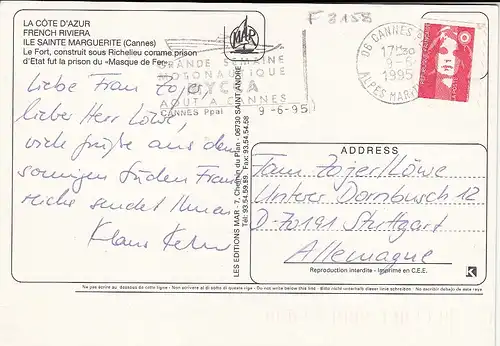 LA CÔTE D'AZUR
FRENCH RIVIERA
ILE SAINTE MARGUERITE (Cannes)
Le Fort, construit sous Richelieu comme prison
d'Etat fut la prison du «Masque de Fer»
MAR
F 3158
GRANDE SEMAINE
MOTONAUTIQUE
AOUT A CANNES
CANNES Ppal
9-6-95
06 CANNES
17H30
9-6
1995
ALPES MAR
Liebe Frau Zojer,
lieber Herr Löwe,
viele Grüße aus dem
sonnigen Süden Frank-
reichs sendet Ihnen
Klaus
LES EDITIONS MAR - 7, Chemin du Plan - 06730 SAINT ANDRE
Tél: 93.54.59.89. Fax: 93.54.54.58
ADDRESS
Fam. Zojer/Löwe
Unterer Dornbusch 12
D-70191 Stuttgart
Allemagne
Reproduction interdite - Imprimé en C.E.E.
K
Ne pas écrire au dessous de cette ligne - Non scrivere al di sotto di questa riga - Do not write below this line - Bitte nicht unterhalb dieser Linie schreiben - No escribir debajo de esta raya